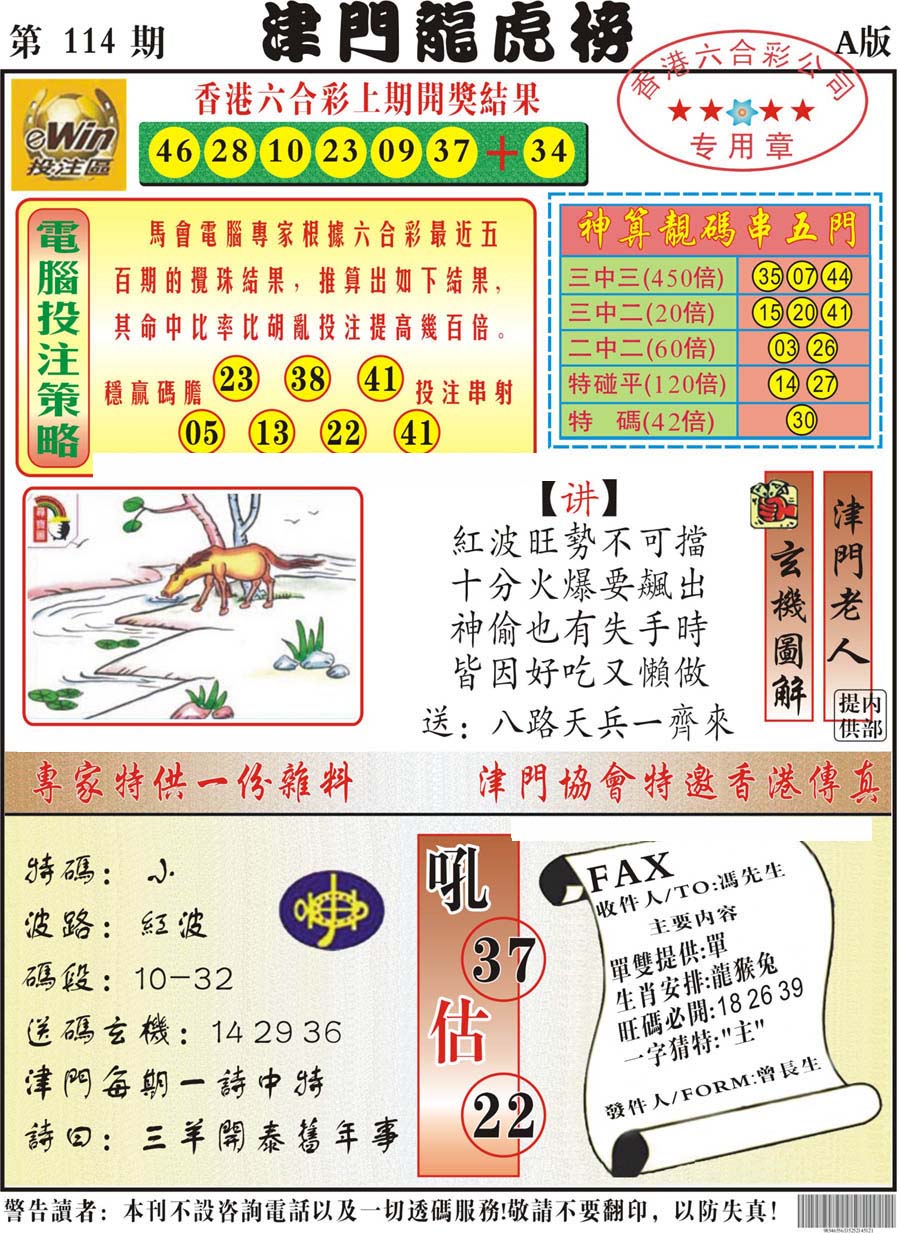 第 114 期
津門龍虎榜
A版
eWin
投注區
香港六合彩上期開獎結果
46 28 10 23 09 37 + 34
香港六合彩公司
专用章
電腦投注策略
馬會電腦專家根據六合彩最近五
百期的攪珠結果，推算出如下結果，
其命中比率比胡亂投注提高幾百倍。
穩贏碼膽 23 38 41 投注串射
05 13 22 41
神算靚碼串五門
三中三(450倍) 35 07 44
三中二(20倍) 15 20 41
二中二(60倍) 03 26
特碰平(120倍) 14 27
特 碼(42倍) 30
尋寶圖
【讲】
紅波旺勢不可擋
十分火爆要飆出
神偷也有失手時
皆因好吃又懶做
送：八路天兵一齊來
玄機圖解
津門老人
内部提供
專家特供一份雜料
津門協會特邀香港傳真
特碼：小
波路：紅波
碼段：10-32
送碼玄機：14 29 36
津門每期一詩中特
詩曰：三羊開泰舊年事
吼
37
估
22
FAX
收件人/TO:馮先生
主要内容
單雙提供:單
生肖安排:龍猴兔
旺碼必開:18 26 39
一字猜特:"主"
發件人/FORM:曾長生
警告讀者：本刊不設咨詢電話以及一切透碼服務!敬請不要翻印，以防失真!